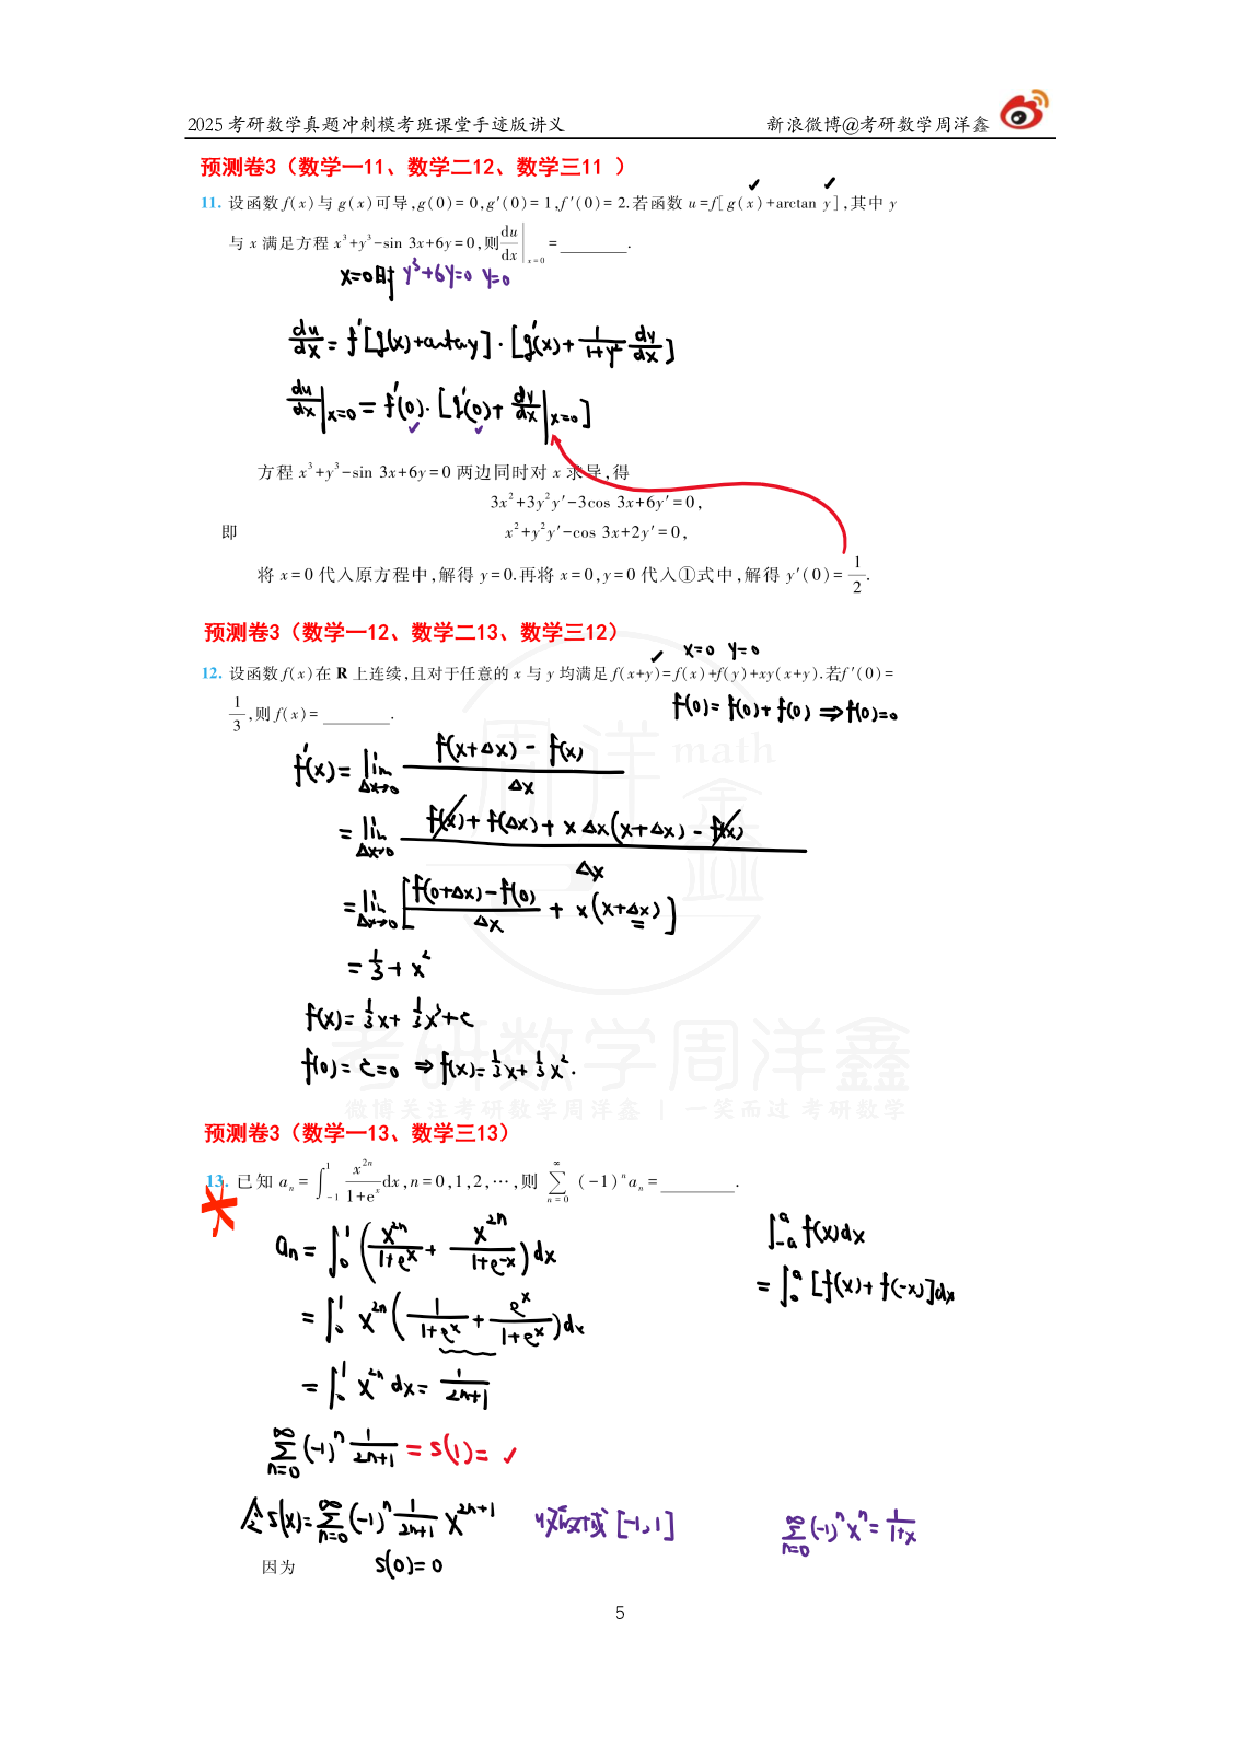 2025考研数学真题冲刺模考班课堂手迹版讲义 新浪微博@考研数学周洋鑫
预测卷3（数学一11、数学二12、数学三11 ）
11. 设函数 f(x)与 g(x)可导,g(0)=0,g′(0)=1,f′(0)=2.若函数 u=f[g(x)+arctan y],其中 y
与 x 满足方程 x³+y³-sin 3x+6y=0,则 du/dx|x=0 = ______.
x=0时 y³+6y=0 y=0
du/dx = f′[g(x)+arctany]·[g′(x)+ 1/(1+y²) dy/dx]
du/dx|x=0 = f′(0)·[g′(0)+ dy/dx|x=0]
方程 x³+y³-sin 3x+6y=0 两边同时对 x 求导,得
3x²+3y²y′-3cos 3x+6y′=0,
即 x²+y²y′-cos 3x+2y′=0,
将 x=0 代入原方程中,解得 y=0.再将 x=0,y=0 代入①式中,解得 y′(0)=1/2.
预测卷3（数学一12、数学二13、数学三12）
x=0 y=0
12. 设函数 f(x)在 R 上连续,且对于任意的 x 与 y 均满足 f(x+y)=f(x)+f(y)+xy(x+y).若f′(0)=
1/3,则 f(x)= ______.
f(0)=f(0)+f(0) ⇒f(0)=0
f′(x)= lim Δx→0 (f(x+Δx)-f(x))/Δx
= lim Δx→0 (f(x)+f(Δx)+xΔx(x+Δx)-f(x))/Δx
= lim Δx→0 [(f(0+Δx)-f(0))/Δx + x(x+Δx)]
= 1/3 + x²
f(x)= 1/3 x+ 1/3 x³+c
f(0)=c=0 ⇒f(x)= 1/3 x+ 1/3 x².
周洋鑫 math
考研数学周洋鑫
微博关注考研数学周洋鑫 | 一笑而过 考研数学
预测卷3（数学一13、数学三13）
13. 已知 aₙ=∫₋₁¹ x²ⁿ/(1+eˣ)dx,n=0,1,2,…,则 ∑n=0^∞ (-1)ⁿaₙ=______.
aₙ=∫₀¹(x²ⁿ/(1+eˣ)+ x²ⁿ/(1+e⁻ˣ))dx
∫₋ₐᵃ f(x)dx
=∫₀ᵃ[f(x)+f(-x)]dx
=∫₀¹ x²ⁿ(1/(1+eˣ)+ eˣ/(1+eˣ))dx
=∫₀¹ x²ⁿ dx= 1/(2n+1)
∑n=0^∞ (-1)ⁿ 1/(2n+1) = S(1)=
令S(x)=∑n=0^∞ (-1)ⁿ 1/(2n+1) x²ⁿ⁺¹ 收敛域 [-1,1] ∑n=0^∞ (-1)ⁿxⁿ= 1/(1+x)
因为 S(0)=0
5